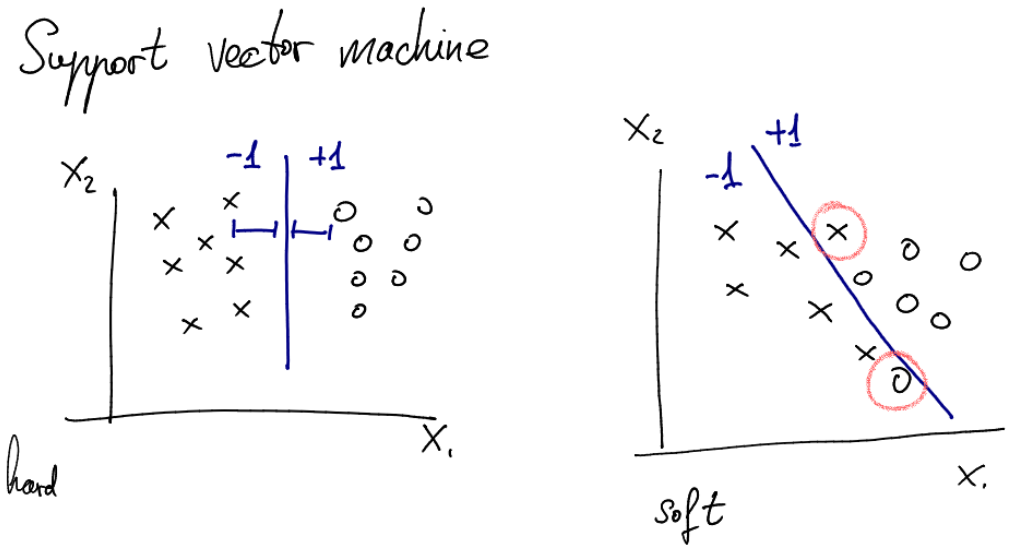 Support vector machine
X₂
-1 +1
X₁
hard
X₂
+1
-1
X₁
soft